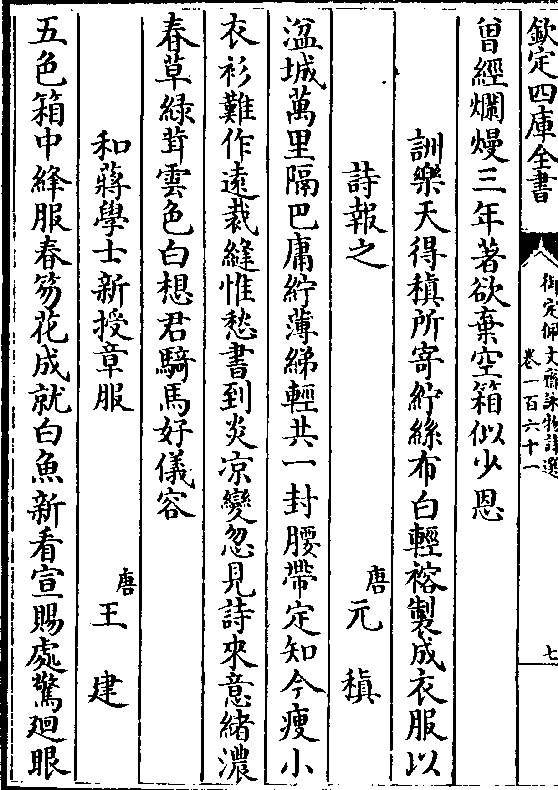 欽定四庫全書
御定佩文齋詠物詩選
卷一百六十一
七
曽經爛熳三年著欲棄空箱似少恩
詶樂天得稹所寄紵絲布白輕褣製成衣服以
詩報之
唐元稹
湓城萬里隔巴庸紵薄綈輕共一封腰帶定知今瘦小
衣衫難作遠裁縫惟愁書到炎凉變忽見詩來意緒濃
春草緑茸雲色白想君騎馬好儀容
和蔣學士新授章服
唐王建
五色箱中絳服春笏花成就白魚新看宣賜處驚廻眼